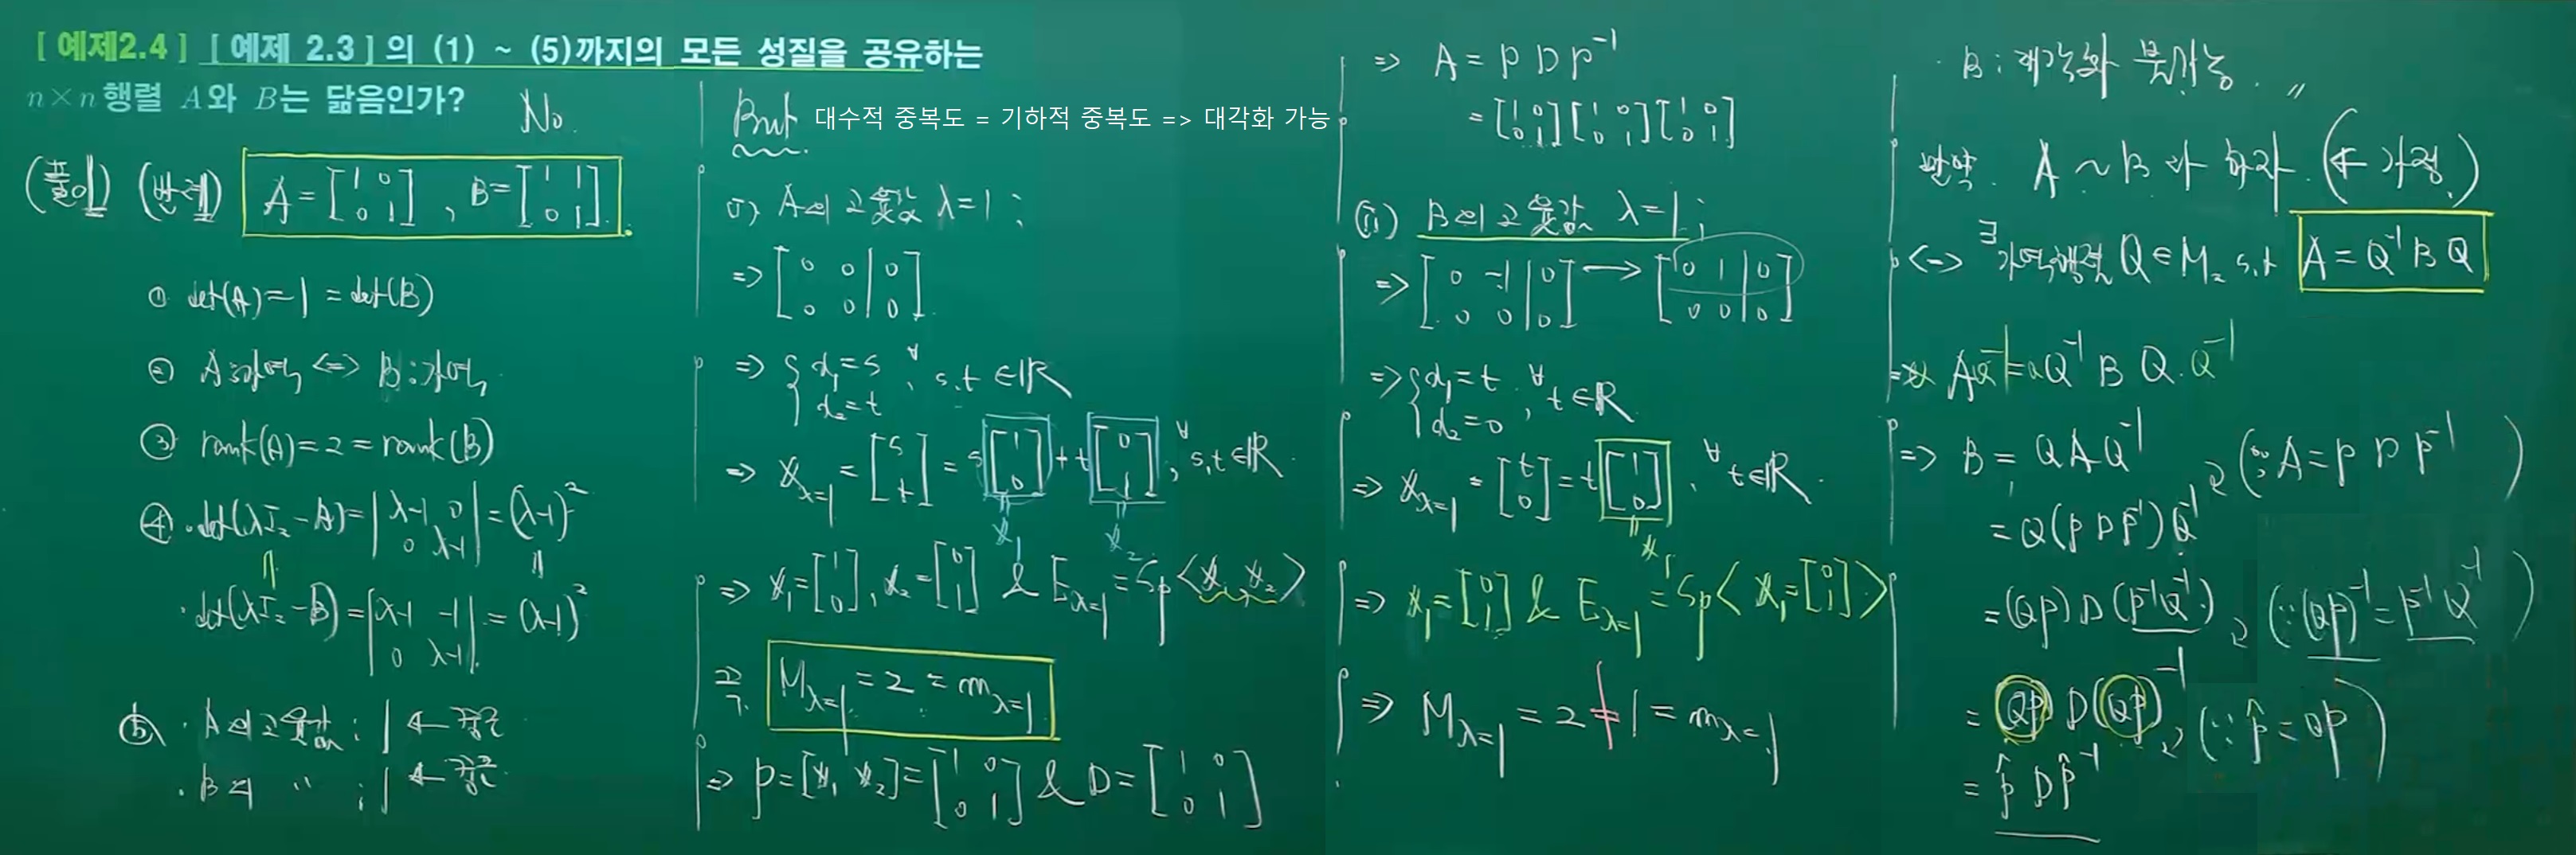 [ 예제2.4 ] [ 예제 2.3 ] 의 (1) ~ (5)까지의 모든 성질을 공유하는
n×n 행렬 A와 B는 닮음인가? No.
(풀이) (반례) A = [1 0; 0 1] , B = [1 1; 0 1].
① det(A) = 1 = det(B)
② A : 가역 <=> B : 가역
③ rank(A) = 2 = rank(B)
④ · det(λI₂ - A) = |λ-1 0; 0 λ-1| = (λ-1)²
· det(λI₂ - B) = |λ-1 -1; 0 λ-1| = (λ-1)²
⑤ · A의 고윳값 : 1 ← 중근
· B의 〃 : 1 ← 중근
But 대수적 중복도 = 기하적 중복도 => 대각화 가능
i) A의 고윳값 λ=1 ;
=> [0 0 | 0; 0 0 | 0]
=> { x₁ = s, x₂ = t , ∀s,t ∈ ℝ
=> x_{λ=1} = [s; t] = s[1; 0] + t[0; 1], ∀s,t ∈ ℝ.
x₁ x₂
=> x₁ = [1; 0], x₂ = [0; 1] & E_{λ=1} = Sp<x₁, x₂>
=> M_{λ=1} = 2 = m_{λ=1}
=> P = [x₁ x₂] = [1 0; 0 1] & D = [1 0; 0 1]
=> A = P D P⁻¹
= [1 0; 0 1][1 0; 0 1][1 0; 0 1]
(ii) B의 고윳값 λ=1 ;
=> [0 -1 | 0; 0 0 | 0] → [0 1 | 0; 0 0 | 0]
=> { x₁ = t, x₂ = 0 , ∀t ∈ ℝ
=> x_{λ=1} = [t; 0] = t[1; 0], ∀t ∈ ℝ.
x₁
=> x₁ = [0; 1] & E_{λ=1} = Sp< x₁ = [0; 1] >
=> M_{λ=1} = 2 ≠ 1 = m_{λ=1}
· B : 대각화 불가능. 〃
만약 A ~ B 라 하자. (← 가정.)
<=> ∃ 가역행렬 Q ∈ M₂ s.t A = Q⁻¹ B Q
=> A Q⁻¹ = Q⁻¹ B Q · Q⁻¹
=> B = Q A Q⁻¹ (∵ A = P D P⁻¹)
= Q (P D P⁻¹) Q⁻¹
= (QP) D (P⁻¹Q⁻¹) (∵ (QP)⁻¹ = P⁻¹Q⁻¹)
= (QP) D (QP)⁻¹ (∵ P̂ = QP)
= P̂ D P̂⁻¹